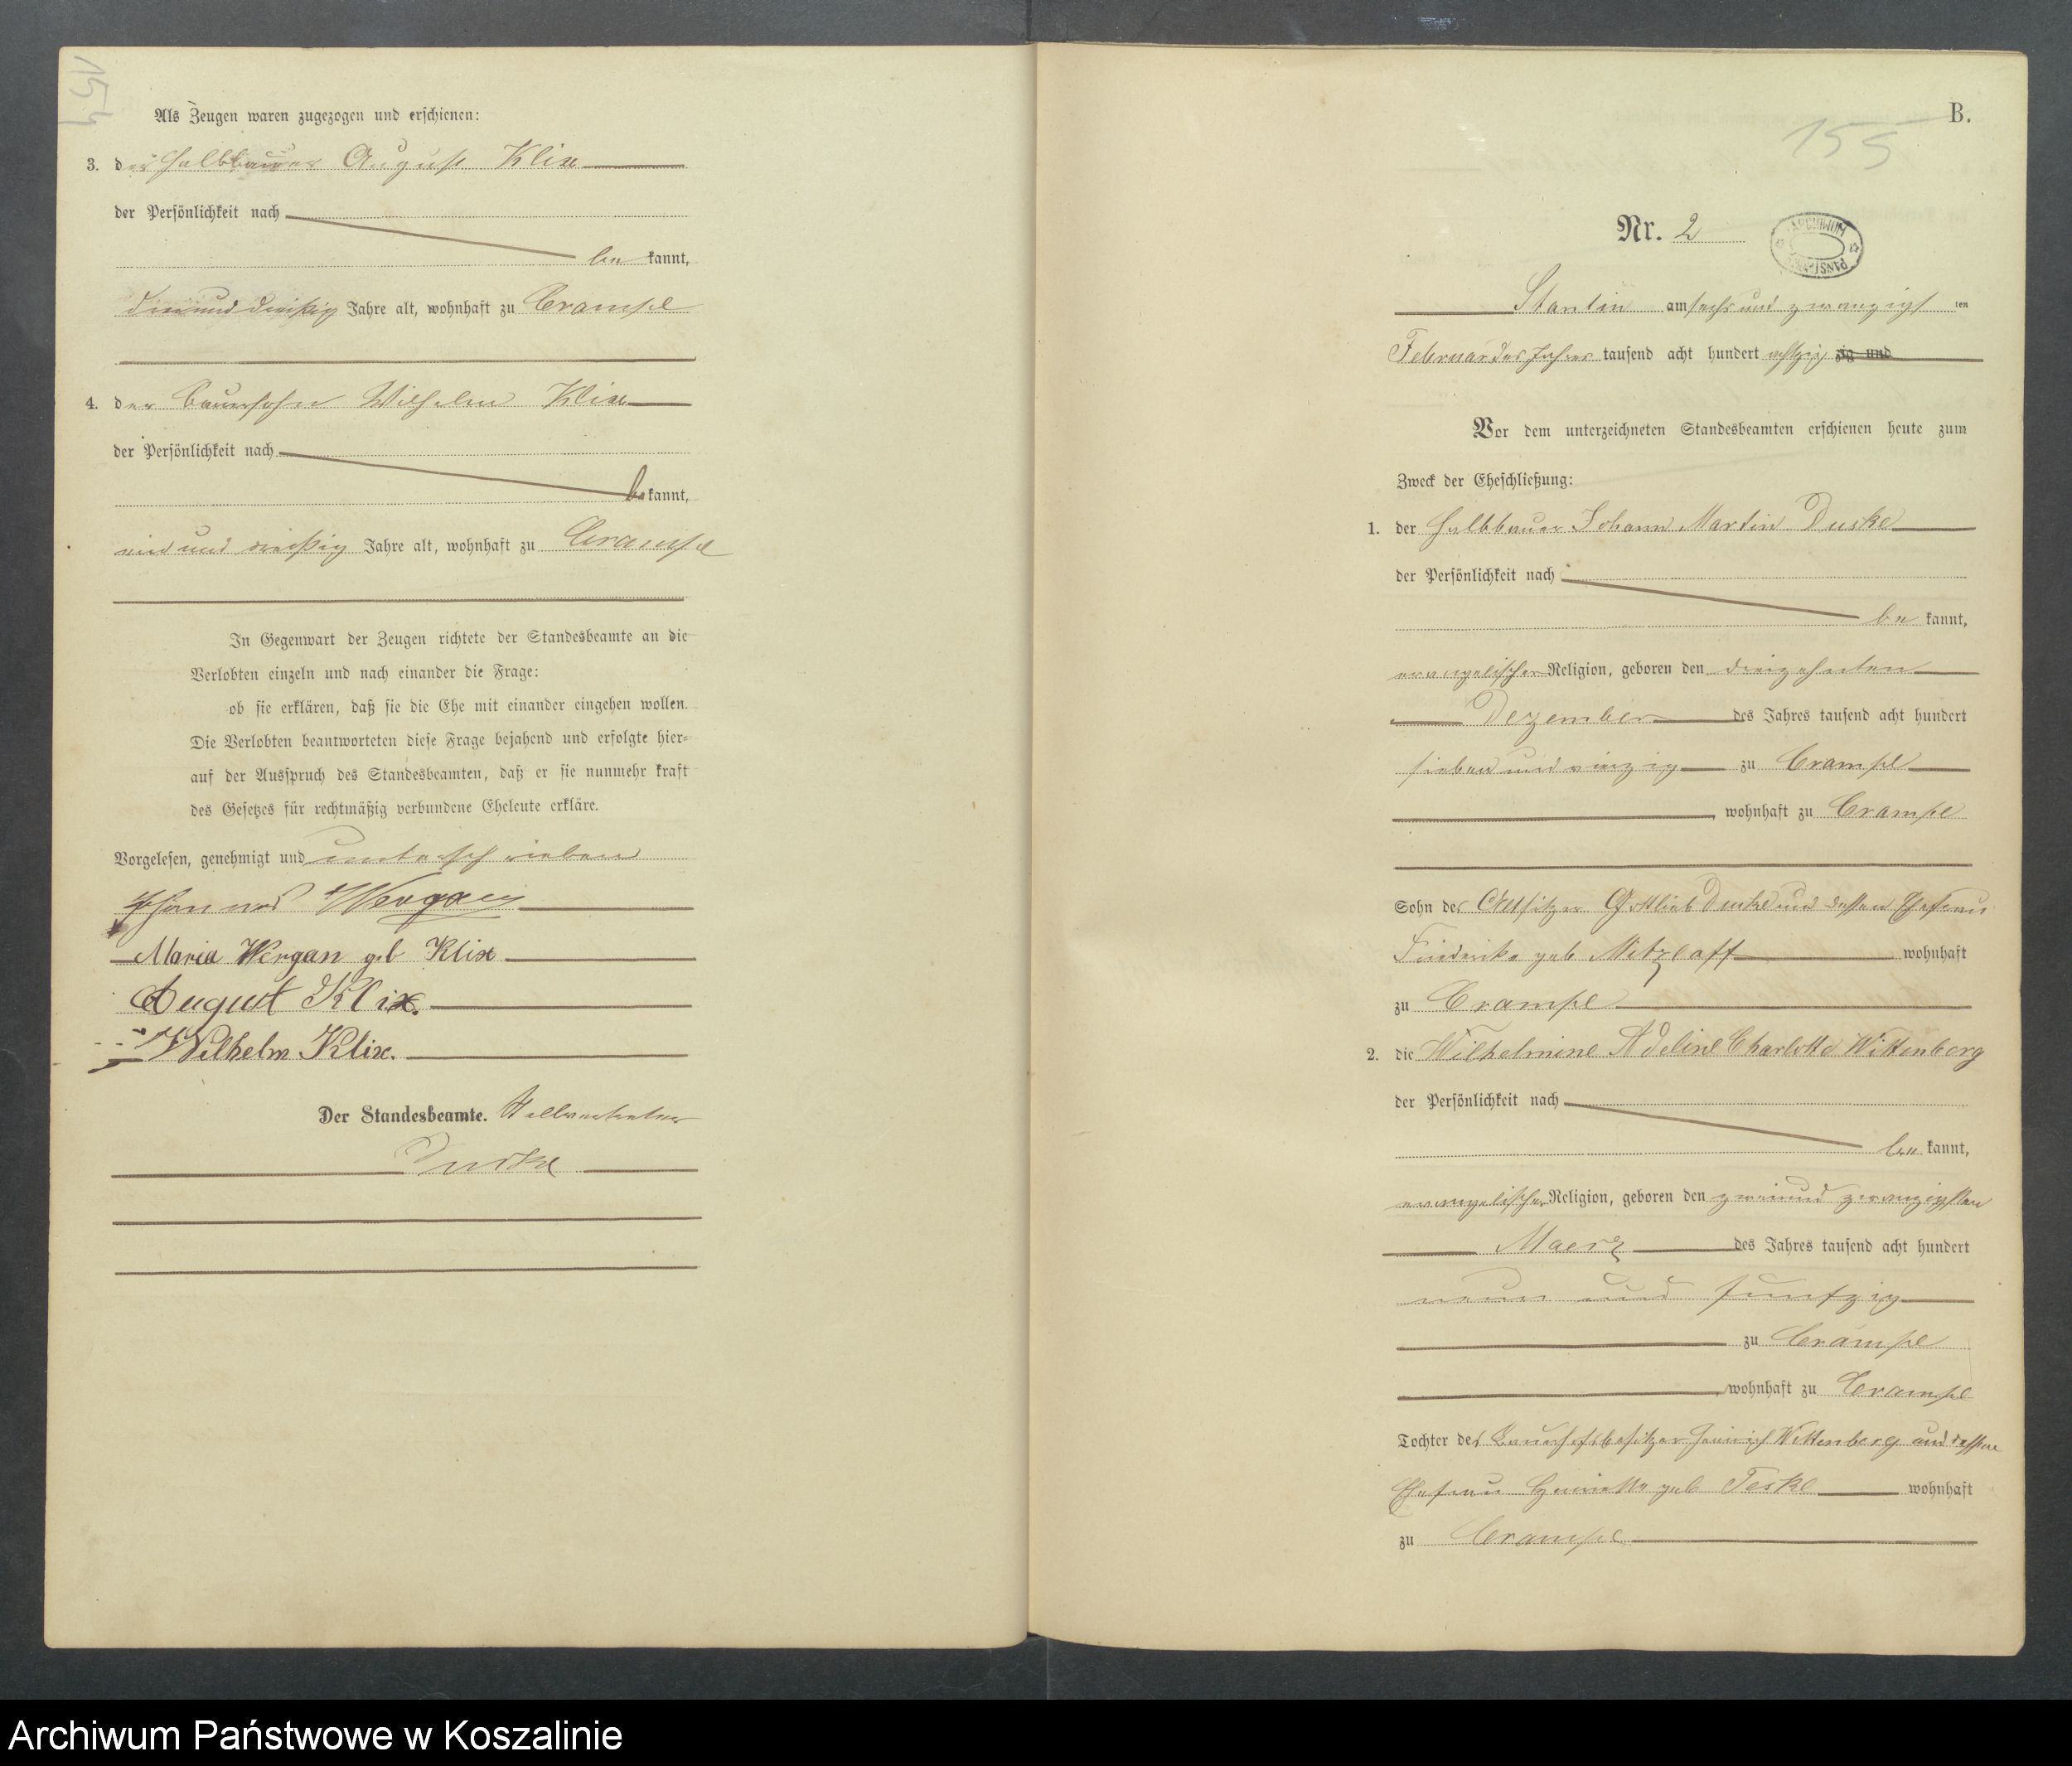 154
Als Zeugen waren zugezogen und erschienen:
3. der Halbbauer August Klix
der Persönlichkeit nach
be kannt,
dreiunddreißig Jahre alt, wohnhaft zu Crampe
4. der Bauersohn Wilhelm Klix
der Persönlichkeit nach
be kannt,
ein und dreißig Jahre alt, wohnhaft zu Crampe
In Gegenwart der Zeugen richtete der Standesbeamte an die
Verlobten einzeln und nach einander die Frage:
ob sie erklären, daß sie die Ehe mit einander eingehen wollen.
Die Verlobten beantworteten diese Frage bejahend und erfolgte hier-
auf der Ausspruch des Standesbeamten, daß er sie nunmehr kraft
des Gesetzes für rechtmäßig verbundene Eheleute erkläre.
Vorgelesen, genehmigt und unterschrieben
Wergan
Maria Wergan geb Klix
August Klix.
Wilhelm Klix.
Der Standesbeamte. Stellvertreter
Duske
B.
155
Nr. 2
ARCHIWUM PAŃSTWOWE
Stantin am sechs und zwanzigst ten
Februar des Jahres tausend acht hundert achtzig zig und
Vor dem unterzeichneten Standesbeamten erschienen heute zum
Zweck der Eheschließung:
1. der Halbbauer Johann Martin Duske
der Persönlichkeit nach
be kannt,
evangelischer Religion, geboren den dreizehnten
Dezember des Jahres tausend acht hundert
sieben und vierzig zu Crampe
, wohnhaft zu Crampe
Sohn des Altsitzer Gottlieb Duske und dessen Ehefrau
Friederike geb Mitzlaff wohnhaft
zu Crampe
2. die Wilhelmine Adeline Charlotte Wittenberg
der Persönlichkeit nach
be kannt,
evangelischer Religion, geboren den zweiund zwanzigsten
Maerz des Jahres tausend acht hundert
neun und funfzig
zu Crampe
, wohnhaft zu Crampe
Tochter des Bauerhofsbesitzer Heinrich Wittenberg und dessen
Ehefrau Henriette geb Teske wohnhaft
zu Crampe
Archiwum Państwowe w Koszalinie